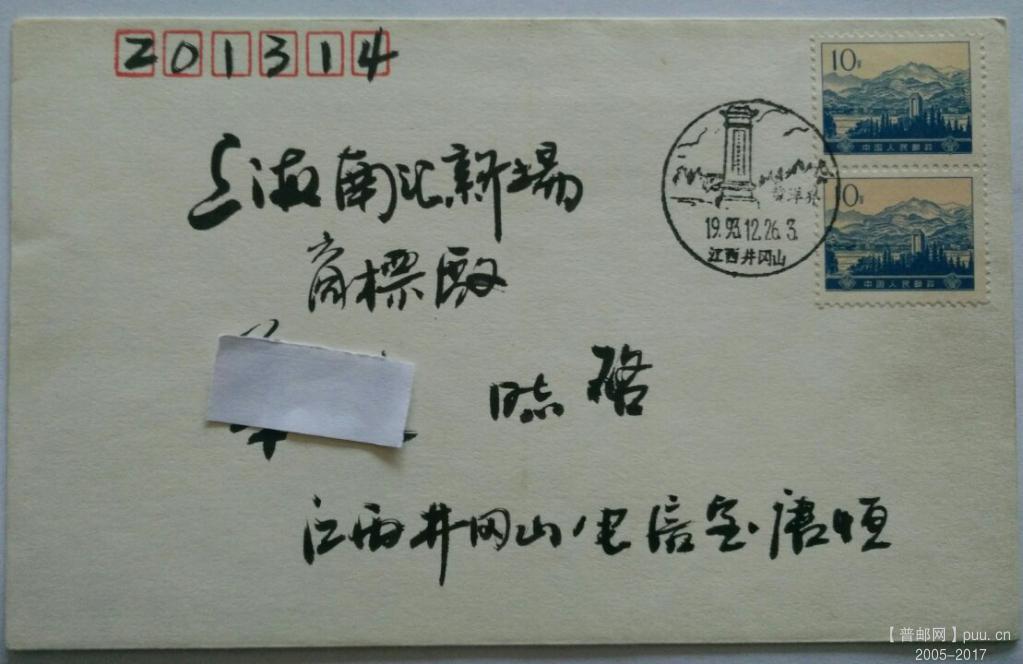 201314
上海南汇新场
商标厰
同志 启
江西井冈山电信局唐恒
10分
中国人民邮政
10分
中国人民邮政
19.93.12.26.3
江西井冈山
【普邮网】puu.cn
2005-2017